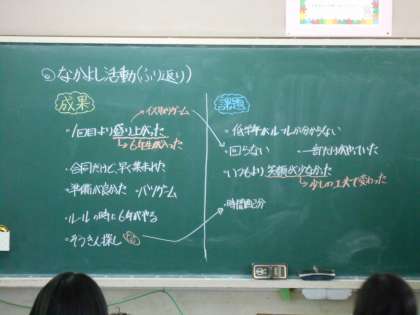 ◎なかよし活動(ふり返り)
成果
イス取りゲーム
・1回目より盛り上がった
・合同だけど、早く集まれた
・準備が良かった
・バツゲーム
・ルールの時に6年がやる
・ぞうさん探し
課題
・低学年がルールが分からない
・回らない
・いつもより笑顔が少なかった
少しの工夫で変わった
・時間配分